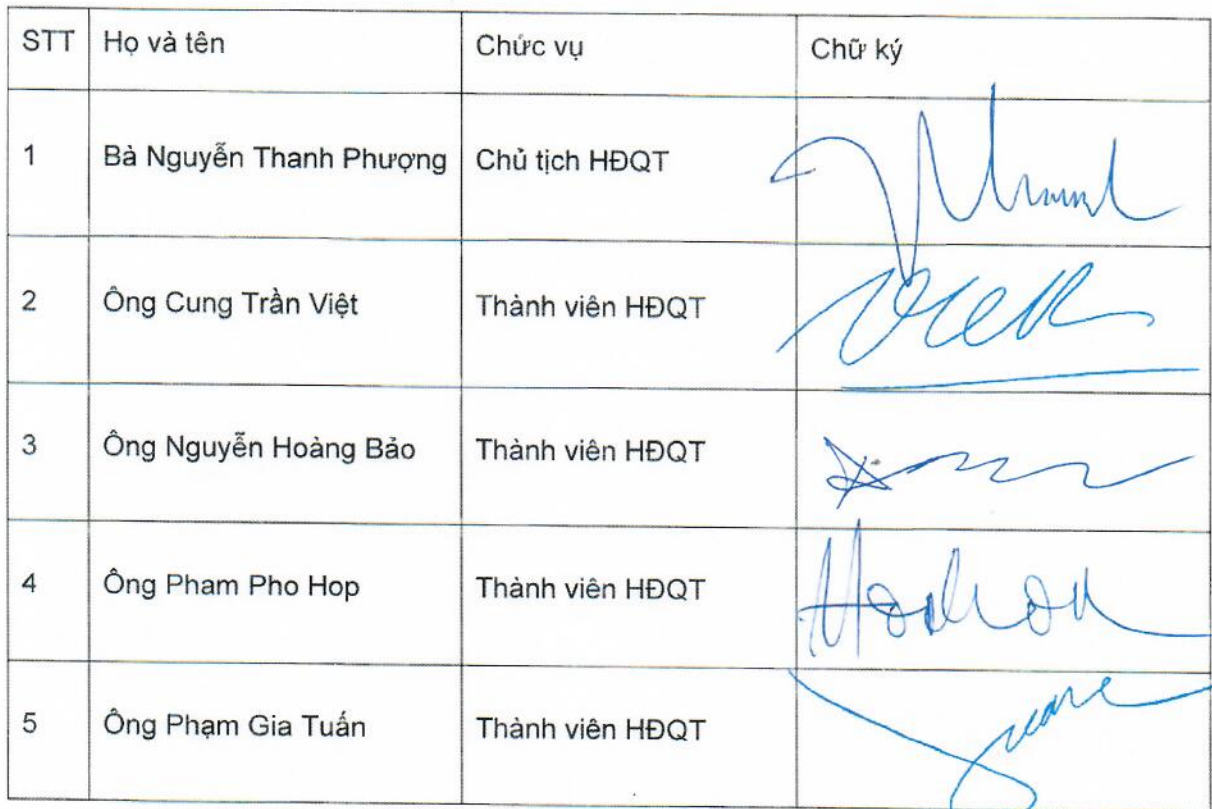 STT Họ và tên Chức vụ Chữ ký
1 Bà Nguyễn Thanh Phượng Chủ tịch HĐQT
2 Ông Cung Trần Việt Thành viên HĐQT
3 Ông Nguyễn Hoàng Bảo Thành viên HĐQT
4 Ông Pham Pho Hop Thành viên HĐQT
5 Ông Phạm Gia Tuấn Thành viên HĐQT